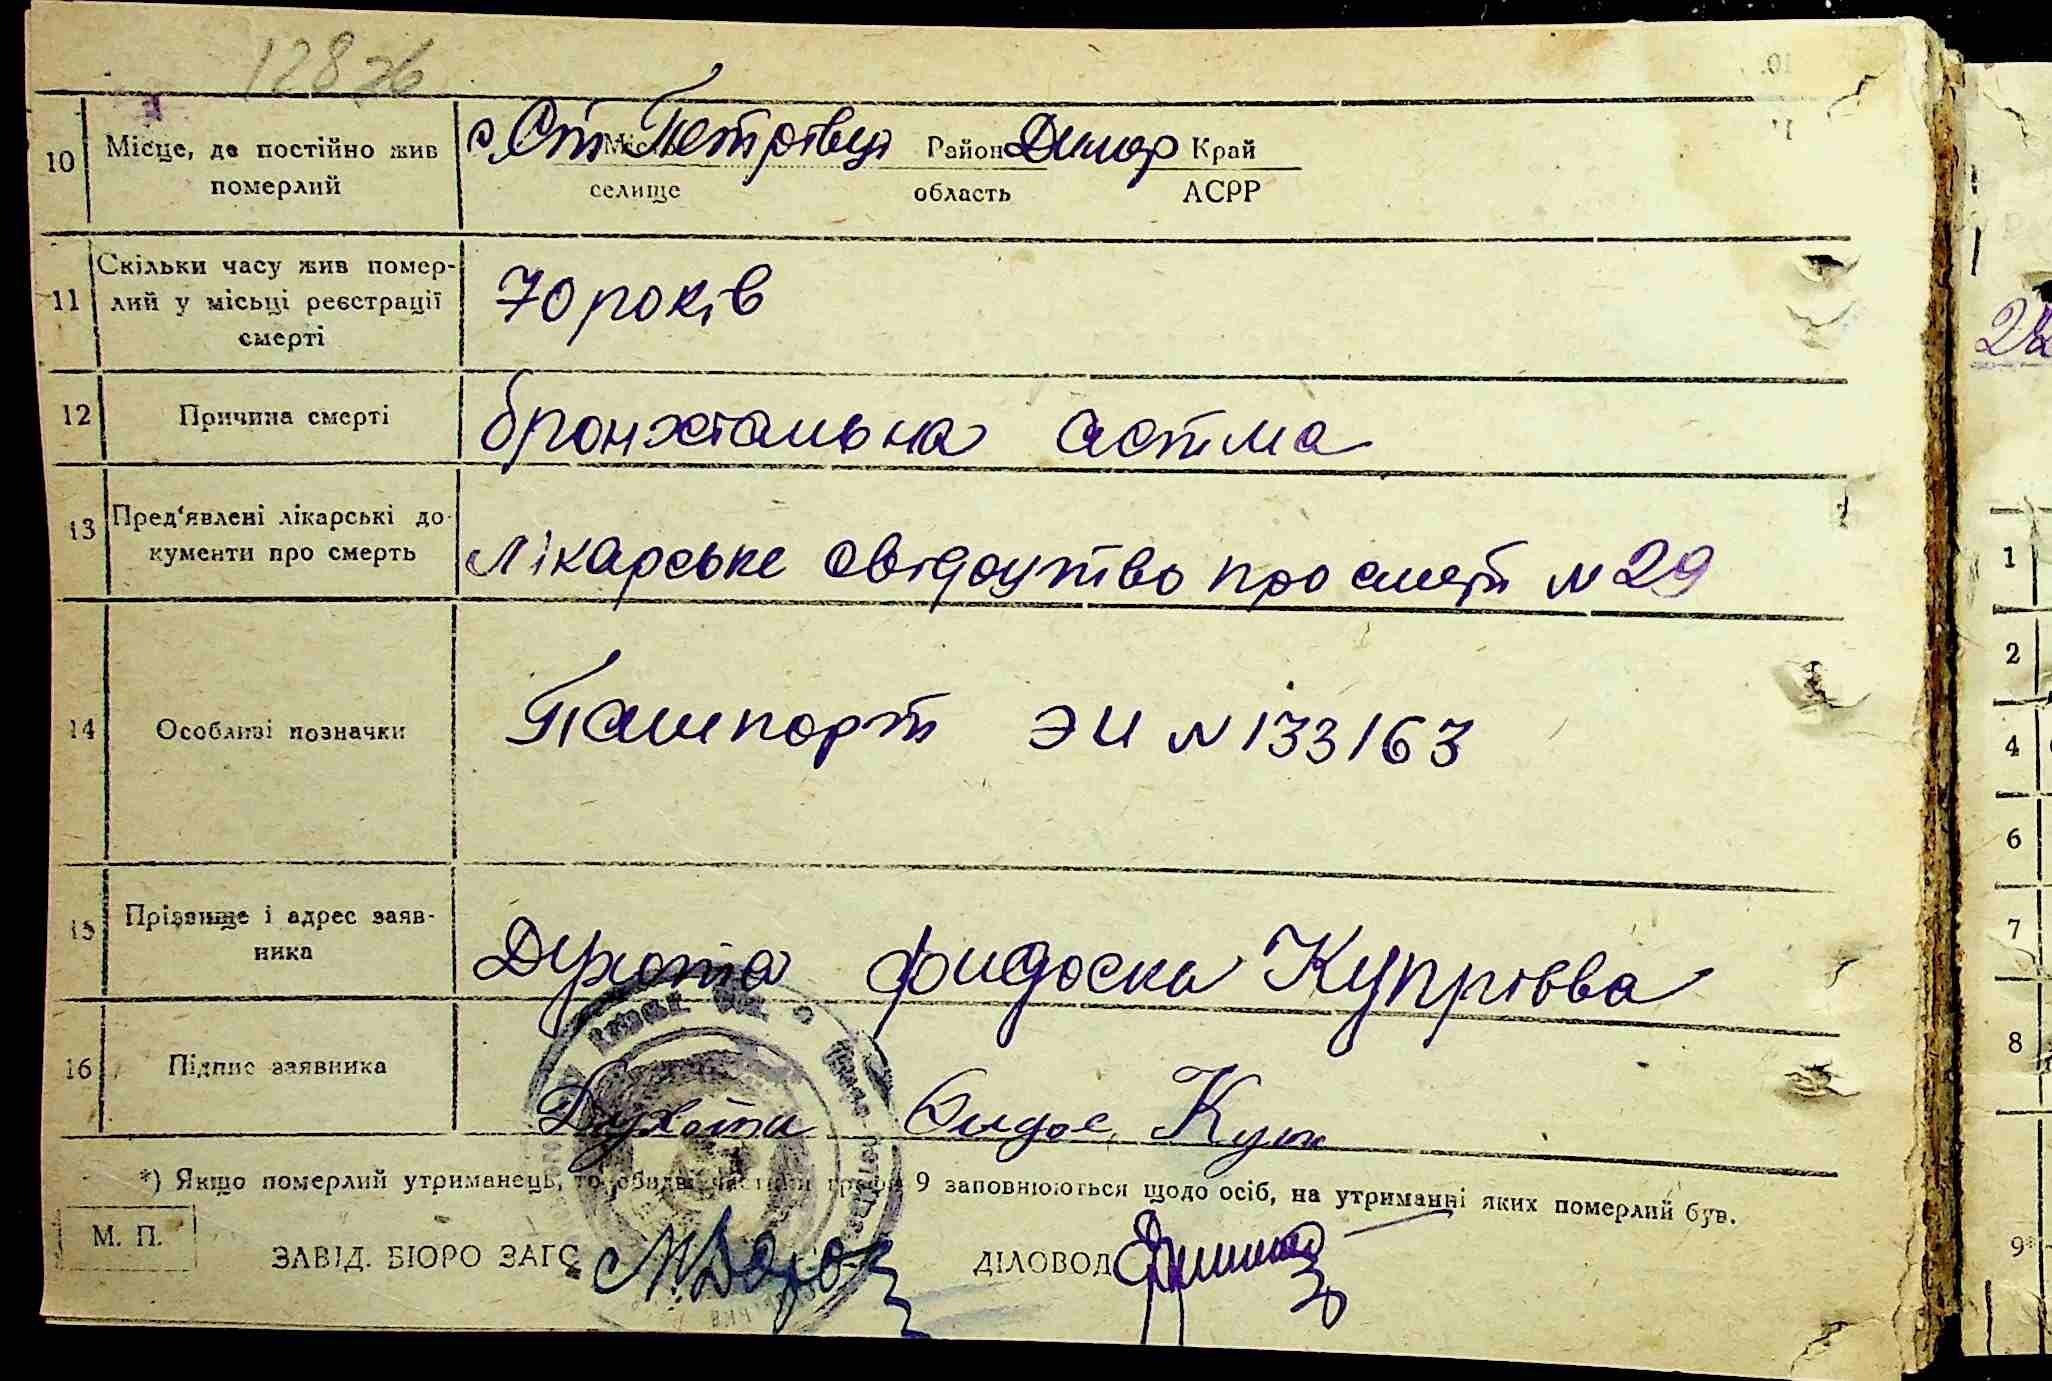 128зв
10 Місце, де постійно жив померлий
с. Ст Петрівці Район Димер Край
селище область АСРР
11 Скільки часу жив помер-
лий у місьці реєстрації
смерті
70 років
12 Причина смерті
бронхіальна астма
13 Пред'явлені лікарські до-
кументи про смерть
Лікарське свідоцтво про смерть N 29
14 Особливі позначки
Пашпорт ЭИ N 133163
15 Прізвище і адрес заяв-
ника
Духота Фидоска Купріівва
16 Підпис заявника
Духота Фидос. Куп
*) Якщо померлий утриманець, то обидві частини графи 9 заповнюються щодо осіб, на утриманні яких померлий був.
М. П.
ЗАВІД. БЮРО ЗАГС
ДІЛОВОД
1
2
4
6
7
8
9*